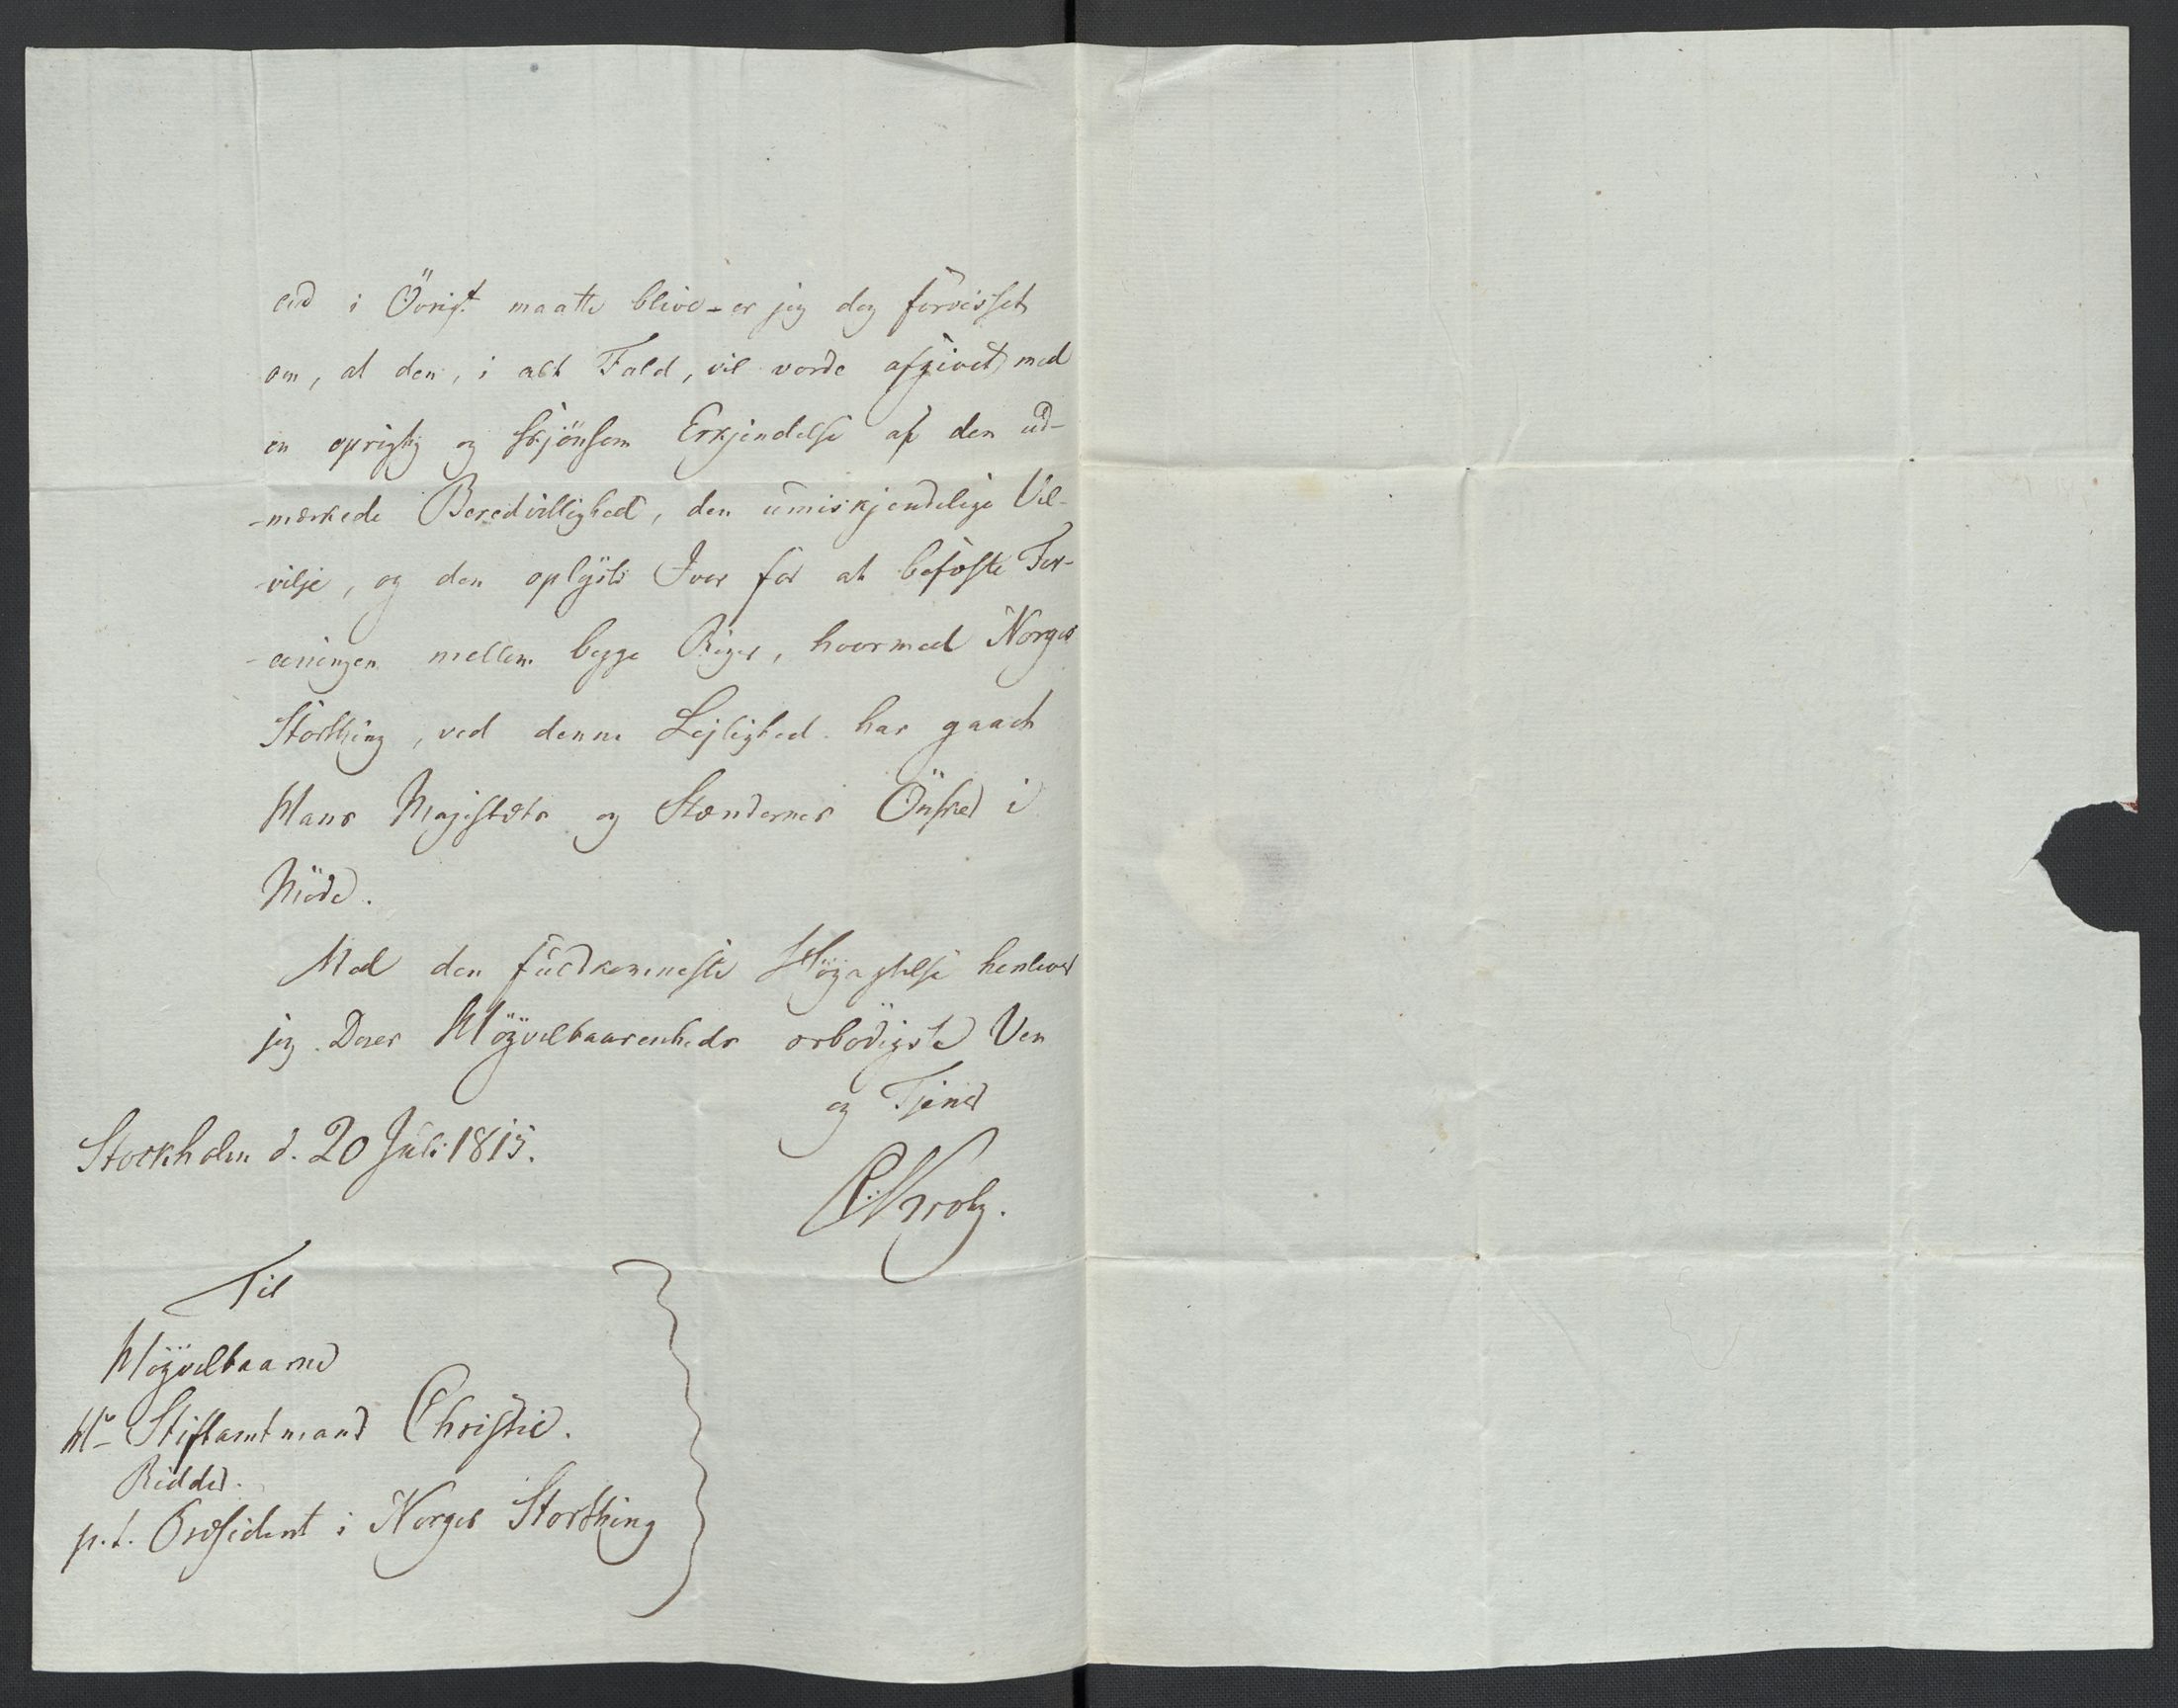 end i Övrigt maatte blive – er jeg dog forvisset
om, at den, i alt Fald, vil vorde afgivet med
en oprigtig og skjönsom Erkjendelse af den ud-
-mærkede Beredvillighed, den umiskjendelige Vel-
-vilje, og den oplyste Iver for at befæste For-
-eeningen mellem begge Riger, hvormed Norges
Storthing, ved denne Lejlighed har gaaet
Hans Majestæts og Stændernes Önsker i
Möde.
Med den fuldkomneste Högagtelse henlever
jeg Deres Höyvelbaarenheds ærbödigste Ven
og Tjener
Stockholm d. 20 Juli 1815.
CKrog.
Til
Höyvelbaarne
Hr Stiftamtmand Christie.
Ridder.
p.t. Præsident i Norges Storthing